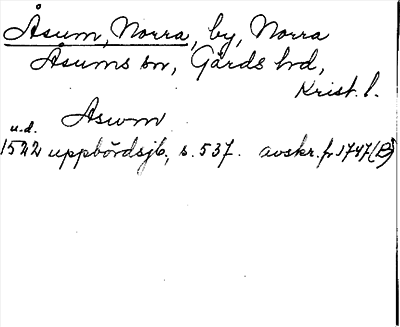 Åsum, Norra, by, Norra
Åsums sn, Gärds hd,
Krist. l.
Aswm
u.d.
1522 uppbördsjb, s. 537. avskr. fr 1747 (B)